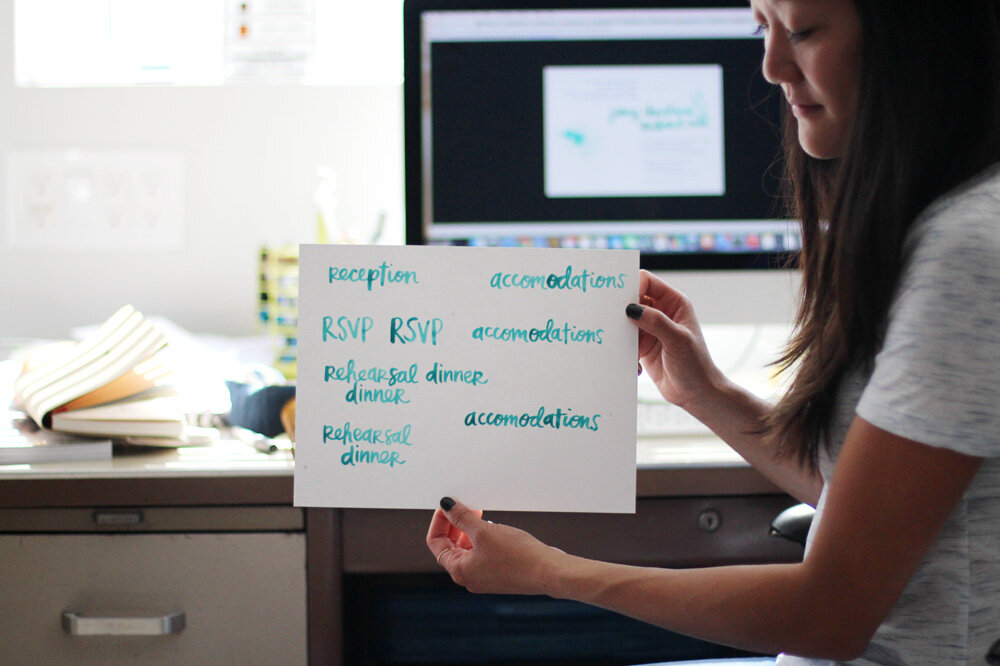 reception accomodations
RSVP RSVP accomodations
Rehearsal dinner
dinner
accomodations
Rehearsal
dinner